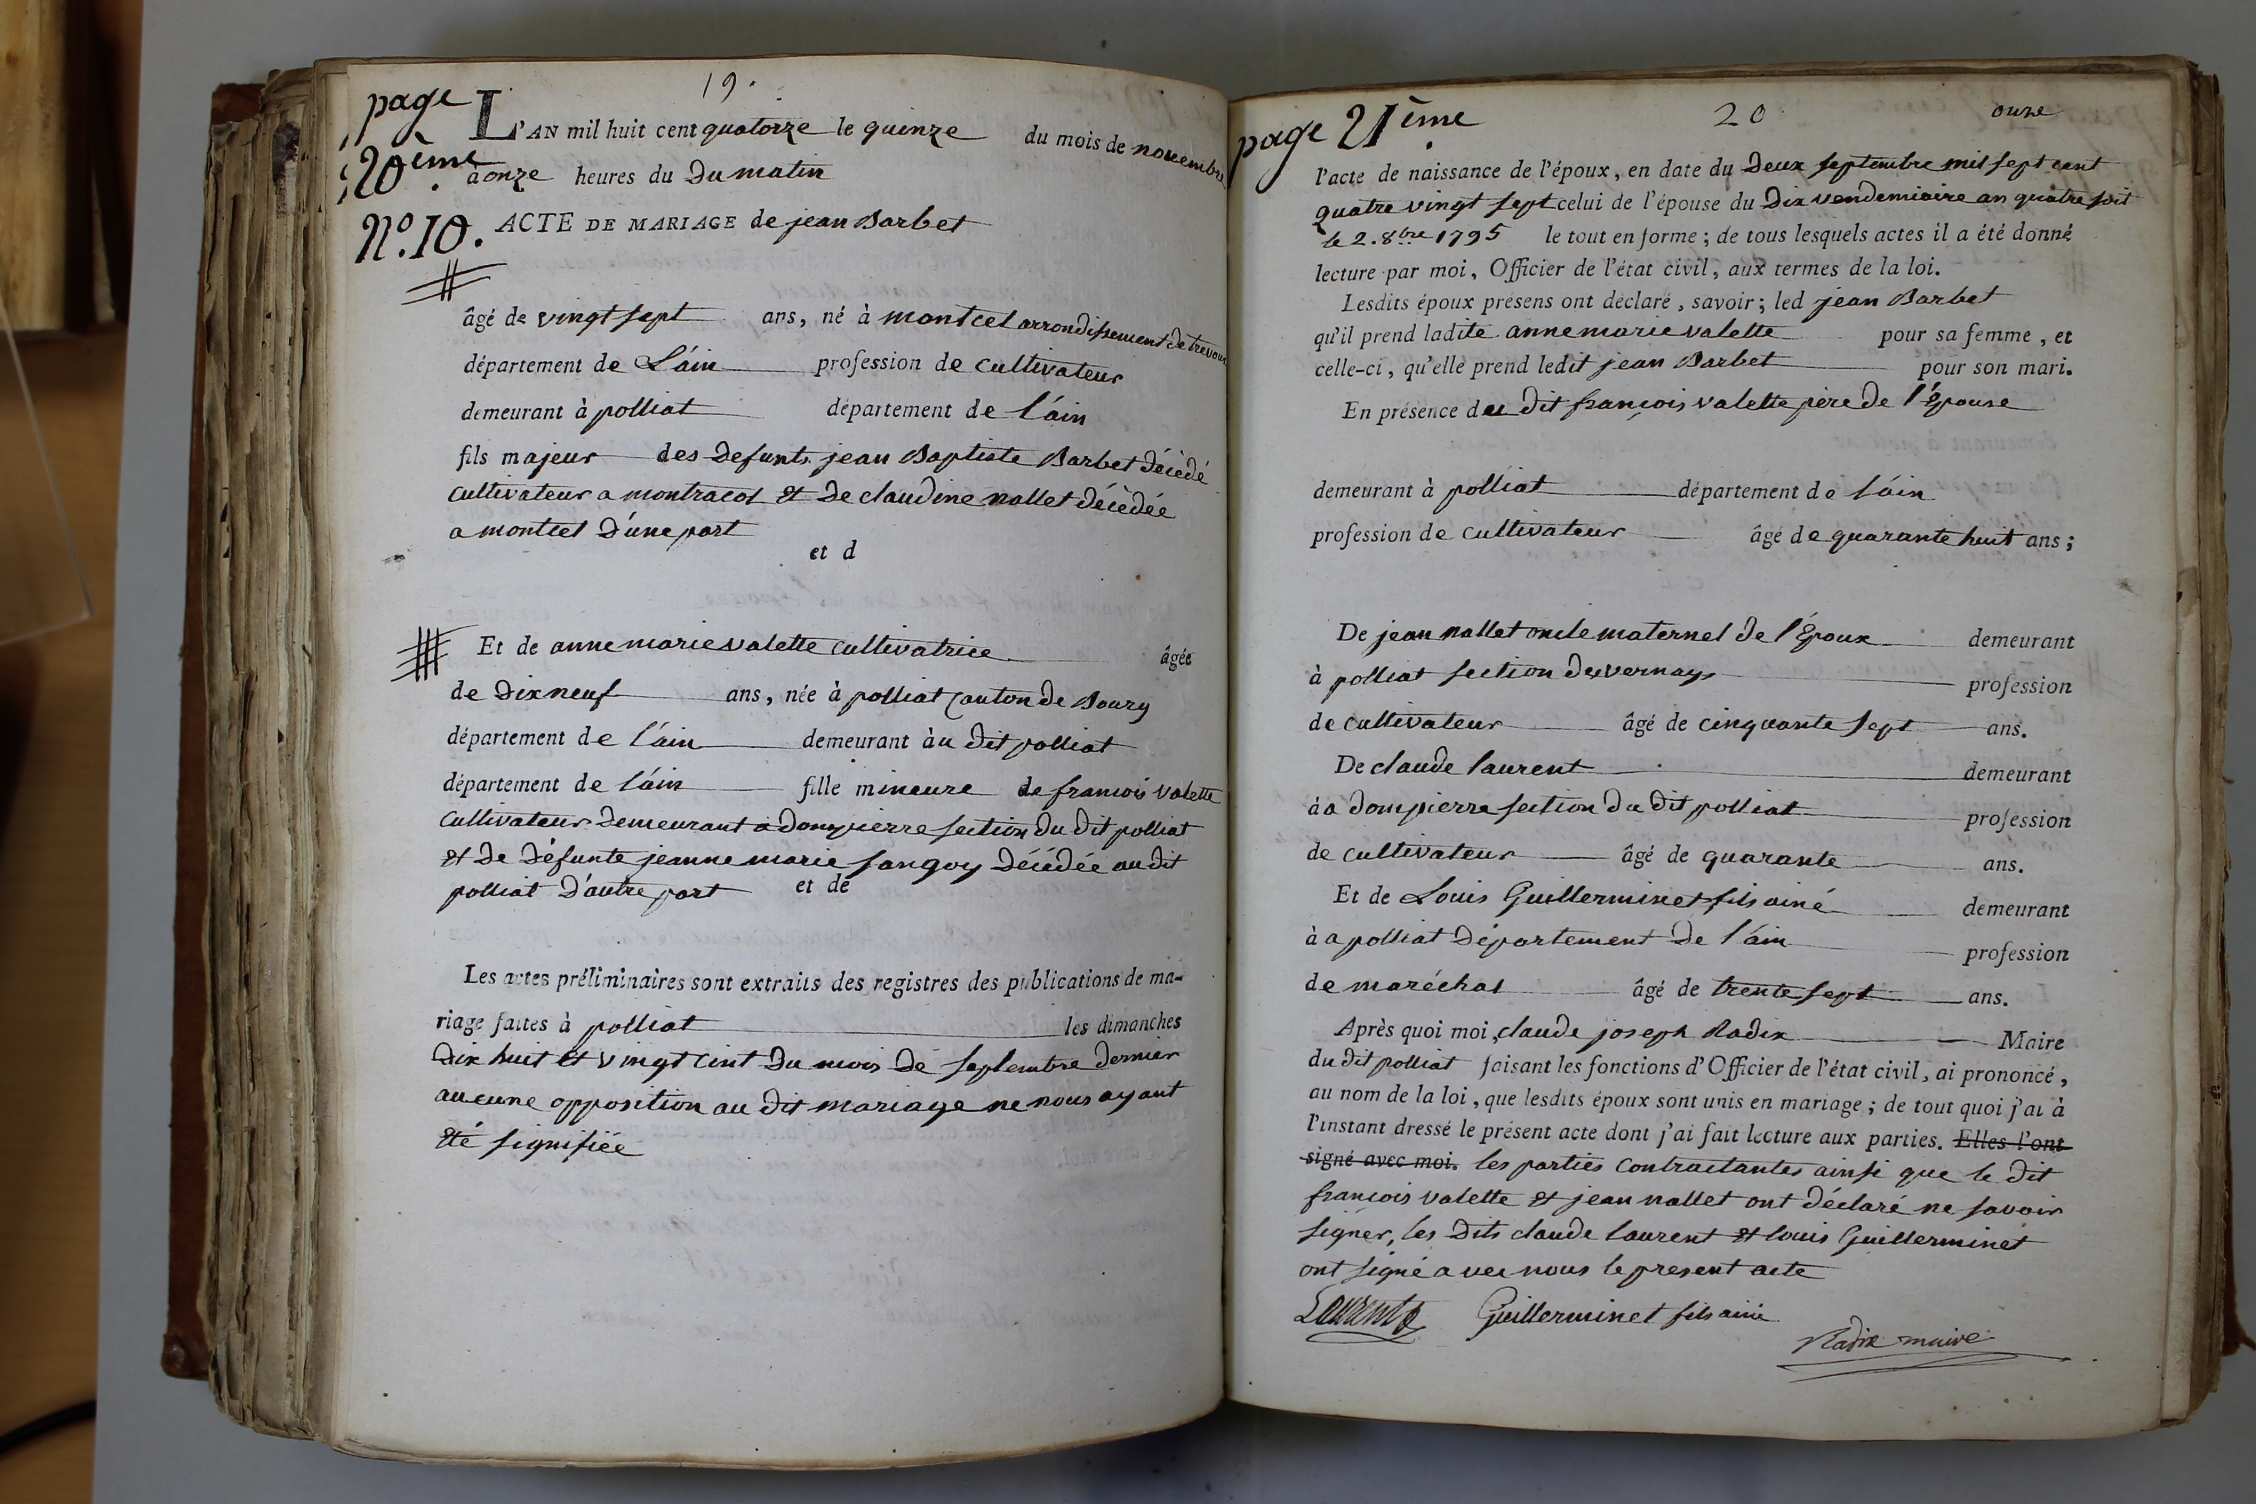 19.
page
20ème
L'AN mil huit cent quatorze le quinze du mois de novembre
à onze heures du Du matin
N.º 10. ACTE DE MARIAGE de jean Barbet
âgé de vingt sept ans, né à montcet arrondissement de trevoux
département de L'áin profession de cultivateur
demeurant à polliat département de l'áin
fils majeur des Defunts jean Baptiste Barbet décèdé
cultivateur a montracol et de claudine nallet décèdée
a montcet D'une part
et d
Et de anne marie valette cultivatrice âgée
de Dix neuf ans, née à polliat Canton de Bourg
département de l'áin demeurant àu dit polliat
département de l'áin fille mineure de francois valette
Cultivateur Demeurant a dompierre section du dit polliat
et De Défunte jeanne marie Sangoy Décédée au dit
polliat D'autre part et de
Les actes préliminaires sont extraits des registres des publications de ma-
riage faites à polliat les dimanches
Dix huit et vingt cint Du mois de septembre dernier
aucune opposition au dit mariage ne nous ayant
été signifiée
page 21ème
20
onze
l'acte de naissance de l'époux, en date du Deux septembre mil sept cent
quatre vingt sept celui de l'épouse du Dix vendemiaire an quatre soit
le 2. 8bre 1795 le tout en forme ; de tous lesquels actes il a été donné
lecture par moi, Officier de l'état civil, aux termes de la loi.
Lesdits époux présens ont déclaré, savoir ; led jean Barbet
qu'il prend ladite anne marie valette pour sa femme, et
celle-ci, qu'elle prend ledit jean Barbet pour son mari.
En présence deu dit françois valette père de l'Épouse
demeurant à polliat département de l'áin
profession de cultivateur âgé de quarante huit ans ;
De jean nallet oncle maternel de l'Époux demeurant
à polliat section des vernays profession
de cultivateur âgé de cinquante sept ans.
De claude laurent demeurant
à a dompierre section du dit polliat profession
de cultivateur âgé de quarante ans.
Et de Louis Guillerminet fils ainé demeurant
à a polliat département de l'áin profession
de maréchal âgé de trente sept ans.
Après quoi moi, claude joseph Radix Maire
du dit polliat faisant les fonctions d'Officier de l'état civil, ai prononcé,
au nom de la loi, que lesdits époux sont unis en mariage ; de tout quoi j'ai à
l'instant dressé le présent acte dont j'ai fait lecture aux parties. Elles l'ont
signé avec moi. les parties contractantes ainsi que le dit
francois valette et jean nallet ont déclaré ne savoir
signer, les dits claude laurent et louis Guillerminet
ont signé avec nous le present acte
Laurent Guillerminet fils ainé
Radix maire